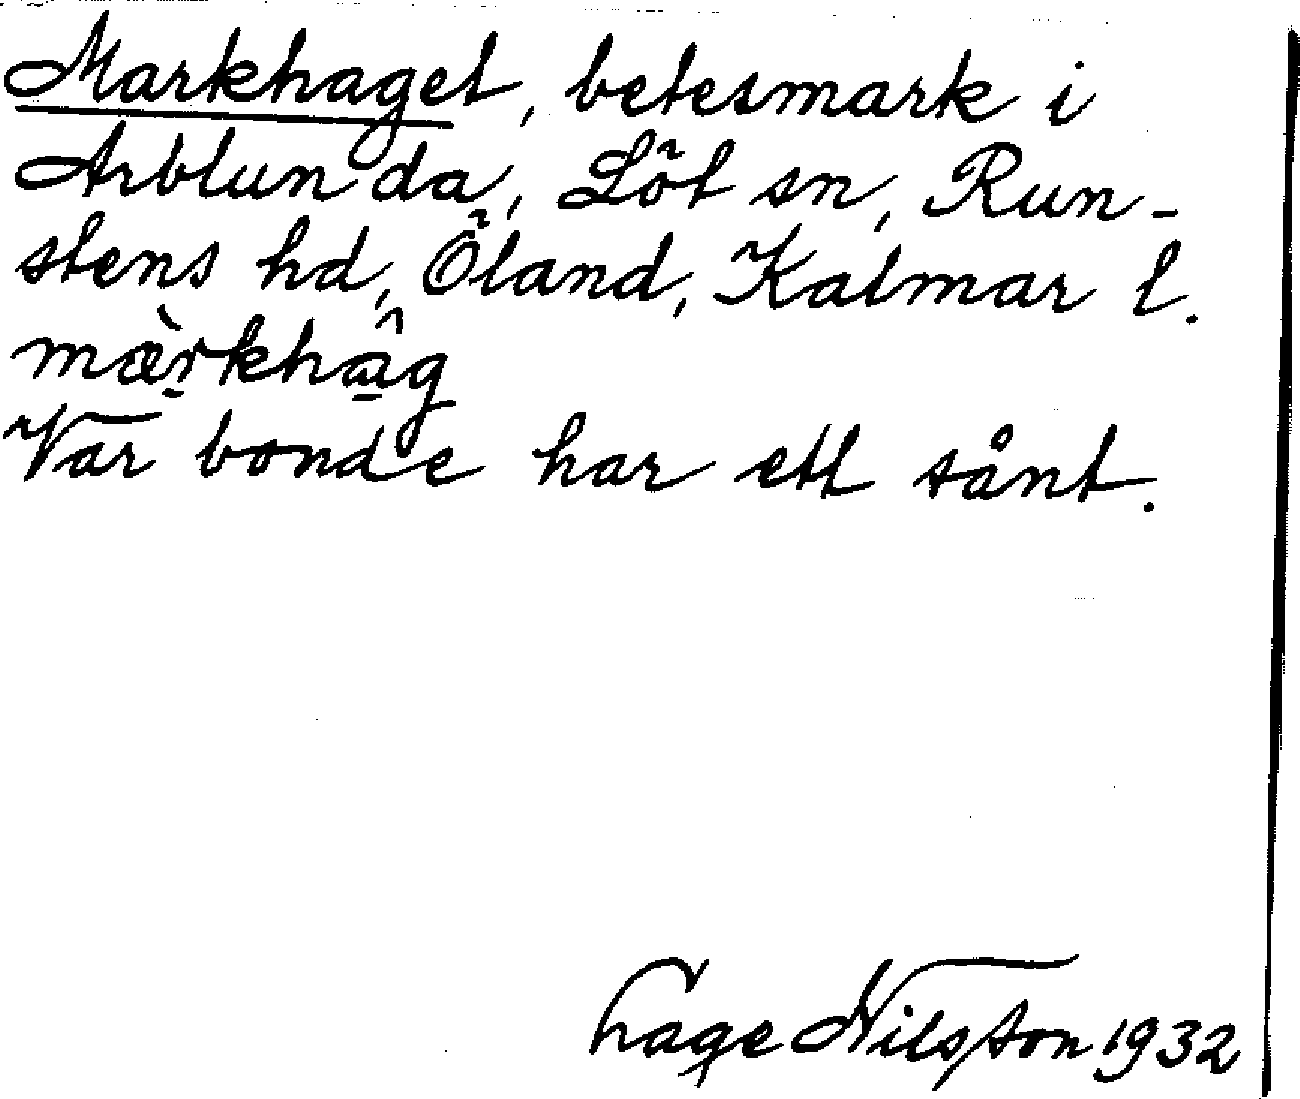 Markhaget, betesmark i
Arblunda, Löt sn, Run-
stens hd, Öland, Kalmar l.
mæ̀rkhâg
Var bonde har ett sånt.
Nilsson 1932